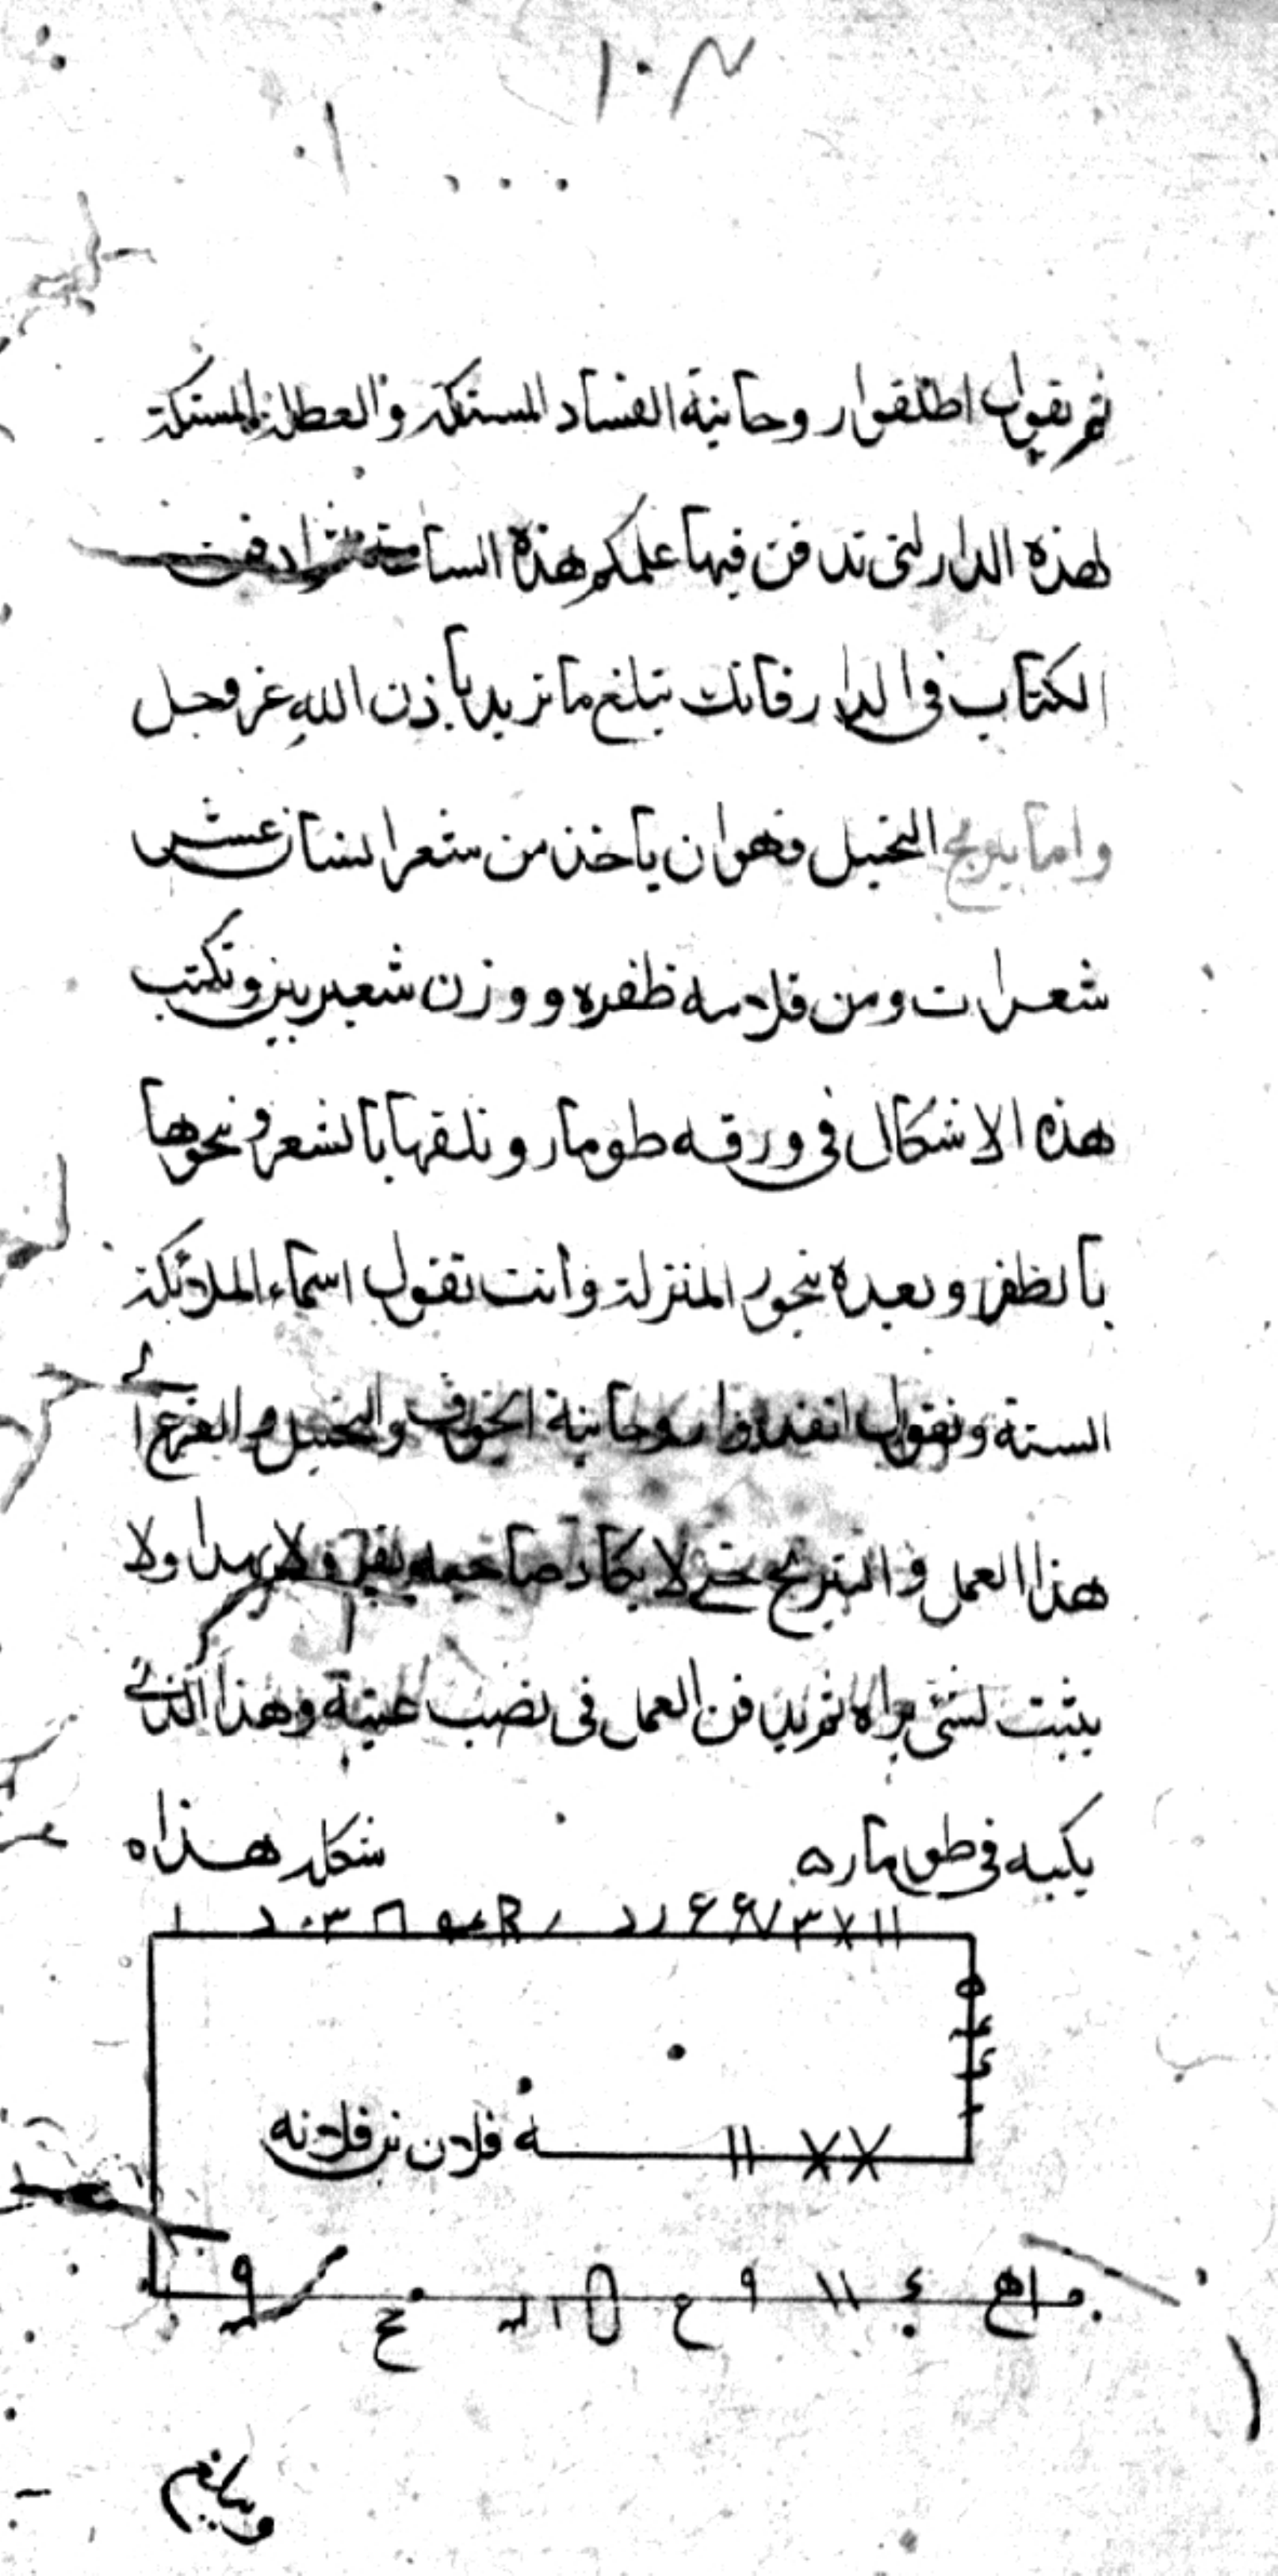 ثم تقول اطلقوا روحانية الفساد المستمكة والعطلة المستمكة
لهذه الدار التى تدفن فيها عملكم هذه الساعة ثم ادفن
الكتاب فى الدار فانك تبلغ ما تريد باذن الله عز وجل
واما بتريح التخبيل فهو ان ياخذ من شعر انسان عشر
شعرات ومن قلامه ظفره ووزن شعيرتين وتكتب
هذه الاشكال فى ورقه طومار وتلفها بالشعر وبخرها
بالظفر وبعده بخور المنزلة وانت تقول اسماء الملائكة
الستة وتقول انفذوا روحانية الخوف والتخبيل والفزع
هذا العمل والتبريح حتى لا يكاد صاحبه يقر ولا يهدا ولا
يثبت لشى يراه ثم يدفن العمل فى نصب عتبة وهذا الذى
يكبه فى طومار ه شكله هذا ه
فلان بن فلانه